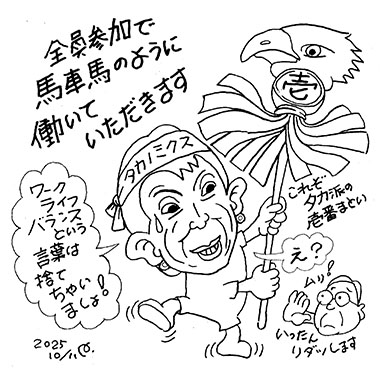 全員参加で
馬車馬のように
働いて
いただきます
壱
タカノミクス
ワーク
ライフ
バランスという
言葉は
捨て
ちゃい
ましょ!
これぞ
タカ派の
壱番まとい
え?
ムリ!
いったん
リダツします
2025
10/11